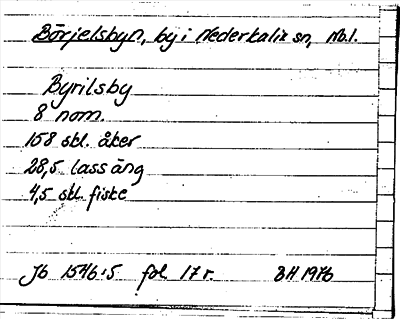 Börjelsbyn, by i Nederkalix sn, Nb.l.
Byrilsby
8 nom.
158 skl. åker
28,5 lass äng
4,5 skl. fiske
Jb 1546:5 fol. 17 r. BH 1976